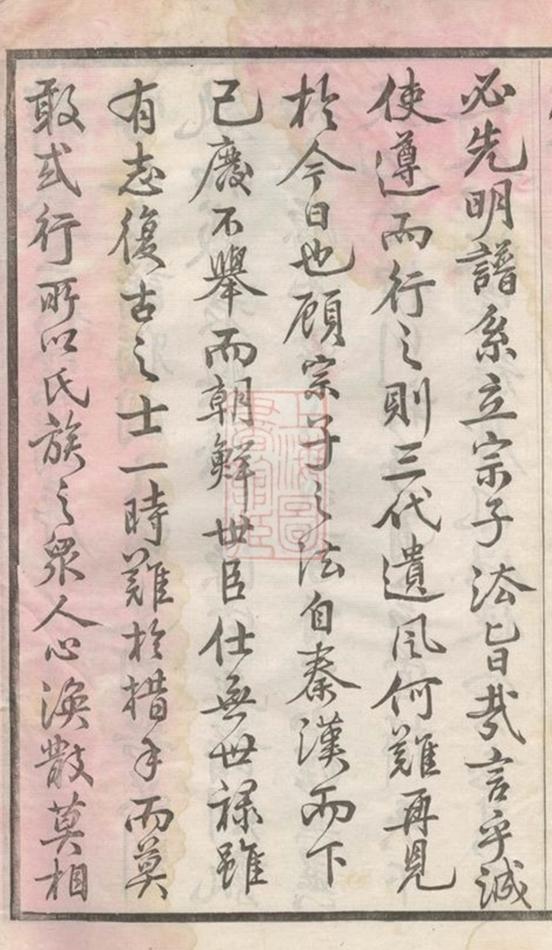 必先明譜系立宗子法旨哉言乎誠
使遵而行之則三代遺风何難再見
於今日也顧宗子之法自秦漢而下
已廢不舉而朝鮮世臣仕無世祿雖
有志復古之士一時難於措手而莫
敢或行所以氏族之衆人心渙散莫相